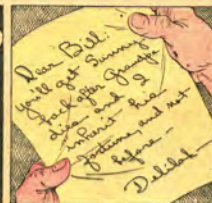 Dear Bill:
You'll get Sunny
back after Granny
dies and I
inherit his
fortune, and not
before —
Delilah